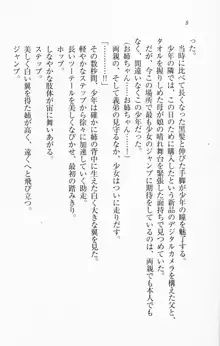 8
当時に比べて少しだけ長くなった黒髪と、伸びやかな手脚が少年の瞳を魅了する。
少年の隣では、この日のために購入したという新品のデジタルカメラを構えた父と、
タオルを握りしめた母が娘の晴れ舞台を緊張した面持ちで見つめている。
だが、今この場所で最も少女のジャンプに期待をしているのは、両親でも本人でも
なく、間違いなくこの少年だった。
（お姉ちゃん……お姉ちゃん……）
両親の、そして義弟の見守るなか、少女はついに走りだす。
その数秒間、少年は確かに姉の背中に白く大きな翼を見た。
軽やかなステップから徐々に加速していく助走。
ポニーテールを美しくなびかせ、最初の踏みきり。
ホップ。
しなやかな肢体が宙に舞いあがる。
ステップ。
美しく白い翼を得た姉が高く、遠くへと飛び立つ。
ジャンプ。